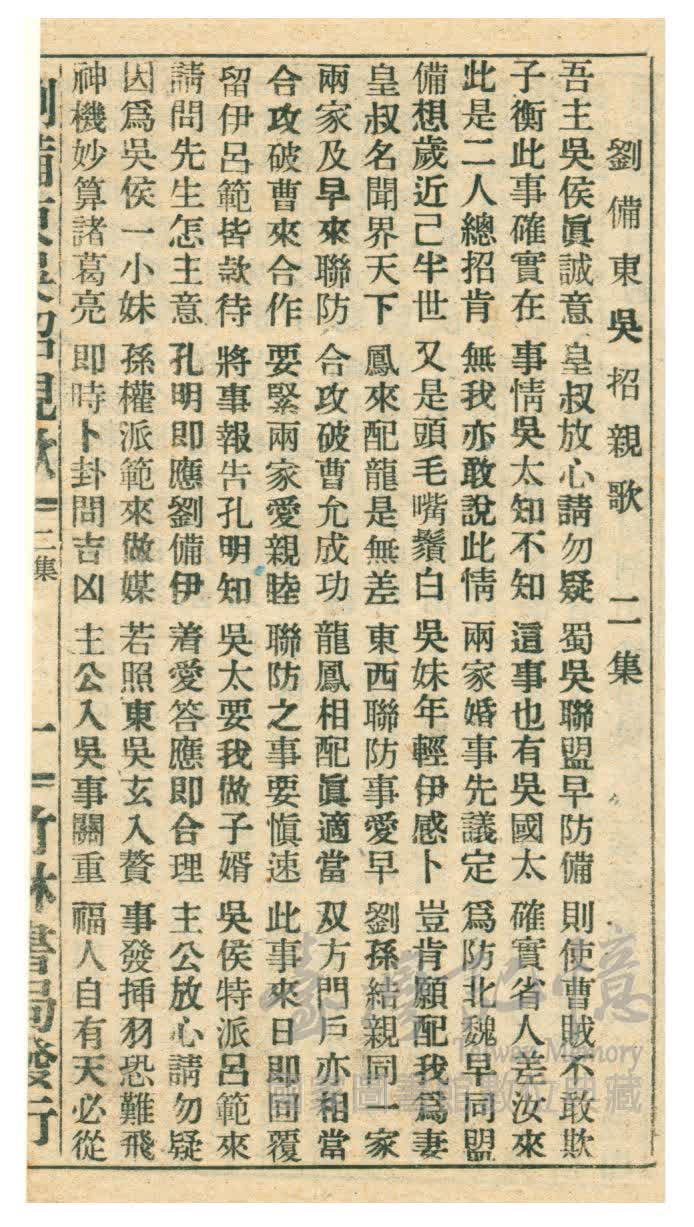 劉備東吳招親歌 二集
吾主吳侯眞誠意 皇叔放心請勿疑 蜀吳聯盟早防備 則使曹賊不敢欺
子衡此事確實在 事情吳太知不知 這事也有吳國太 確實省人差汝來
此是二人總招肯 無我亦敢說此情 兩家婚事先議定 爲防北魏早同盟
備想歲近己半世 又是頭毛嘴鬚白 吳妹年輕伊感卜 豈肯願配我爲妻
皇叔名聞界天下 鳳來配龍是無差 東西聯防事愛早 劉孫結親同一家
兩家及早來聯防 合攻破曹允成功 龍鳳相配眞適當 双方門戶亦相當
合攻破曹來合作 要緊兩家愛親睦 聯防之事要愼速 此事來日即回覆
留伊呂範皆款待 將事報告孔明知 吳太要我做子婿 吳侯特派呂範來
請問先生怎主意 孔明即應劉備伊 着愛答應即合理 主公放心請勿疑
因爲吳侯一小妹 孫權派範來做媒 若照東吳玄入贅 事發揷羽恐難飛
神機妙算諸葛亮 即時卜卦問吉凶 主公入吳事關重 福人自有天必從
劉備東吳招親歌 二集 一 竹林書局發行
臺灣記憶
Taiwan Memory
國家圖書館數位典藏